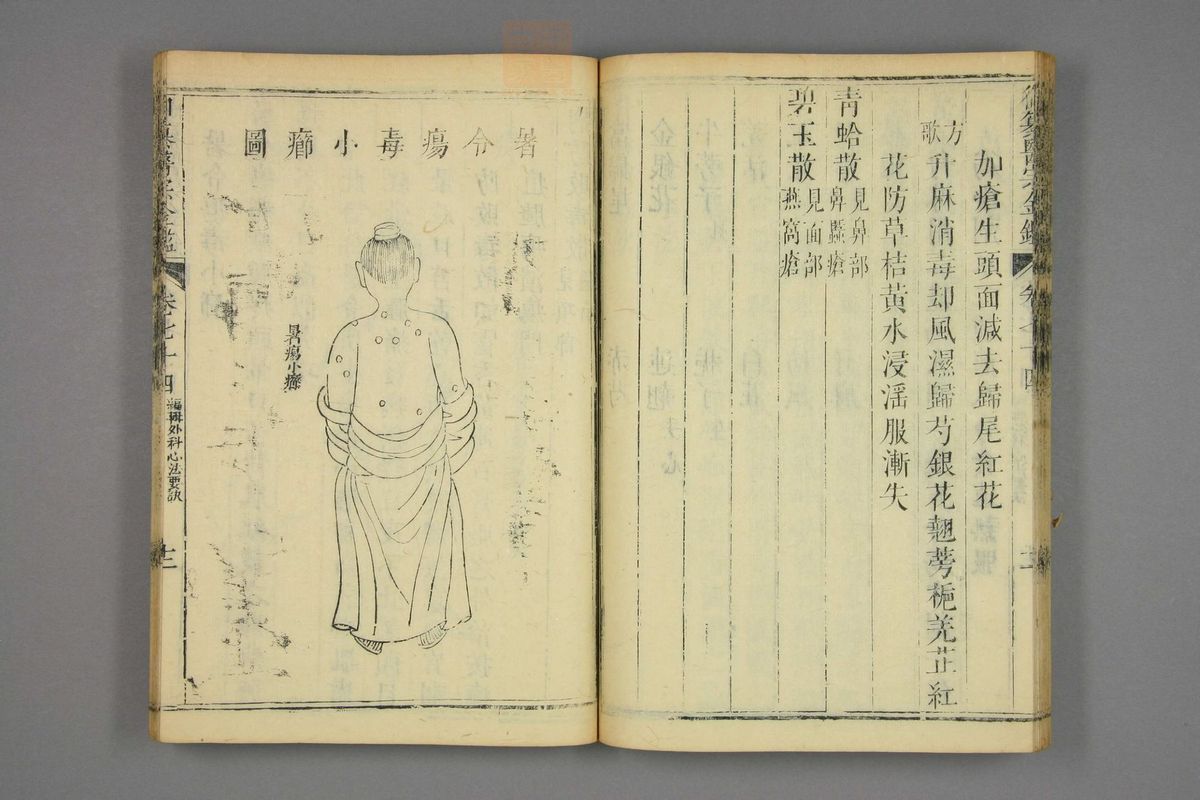 加瘡生頭面減去歸尾紅花
方歌
升麻消毒却風濕歸芍銀花翹蒡梔羌芷紅
花防草桔黃水浸淫服漸失
青蛤散
見鼻部
鼻䘌瘡
碧玉散
見面部
燕窩瘡
御纂醫宗金鑑
卷七十四
暑令瘍毒小癤圖
暑瘍小癤
卷七十四
編輯外科心法要訣